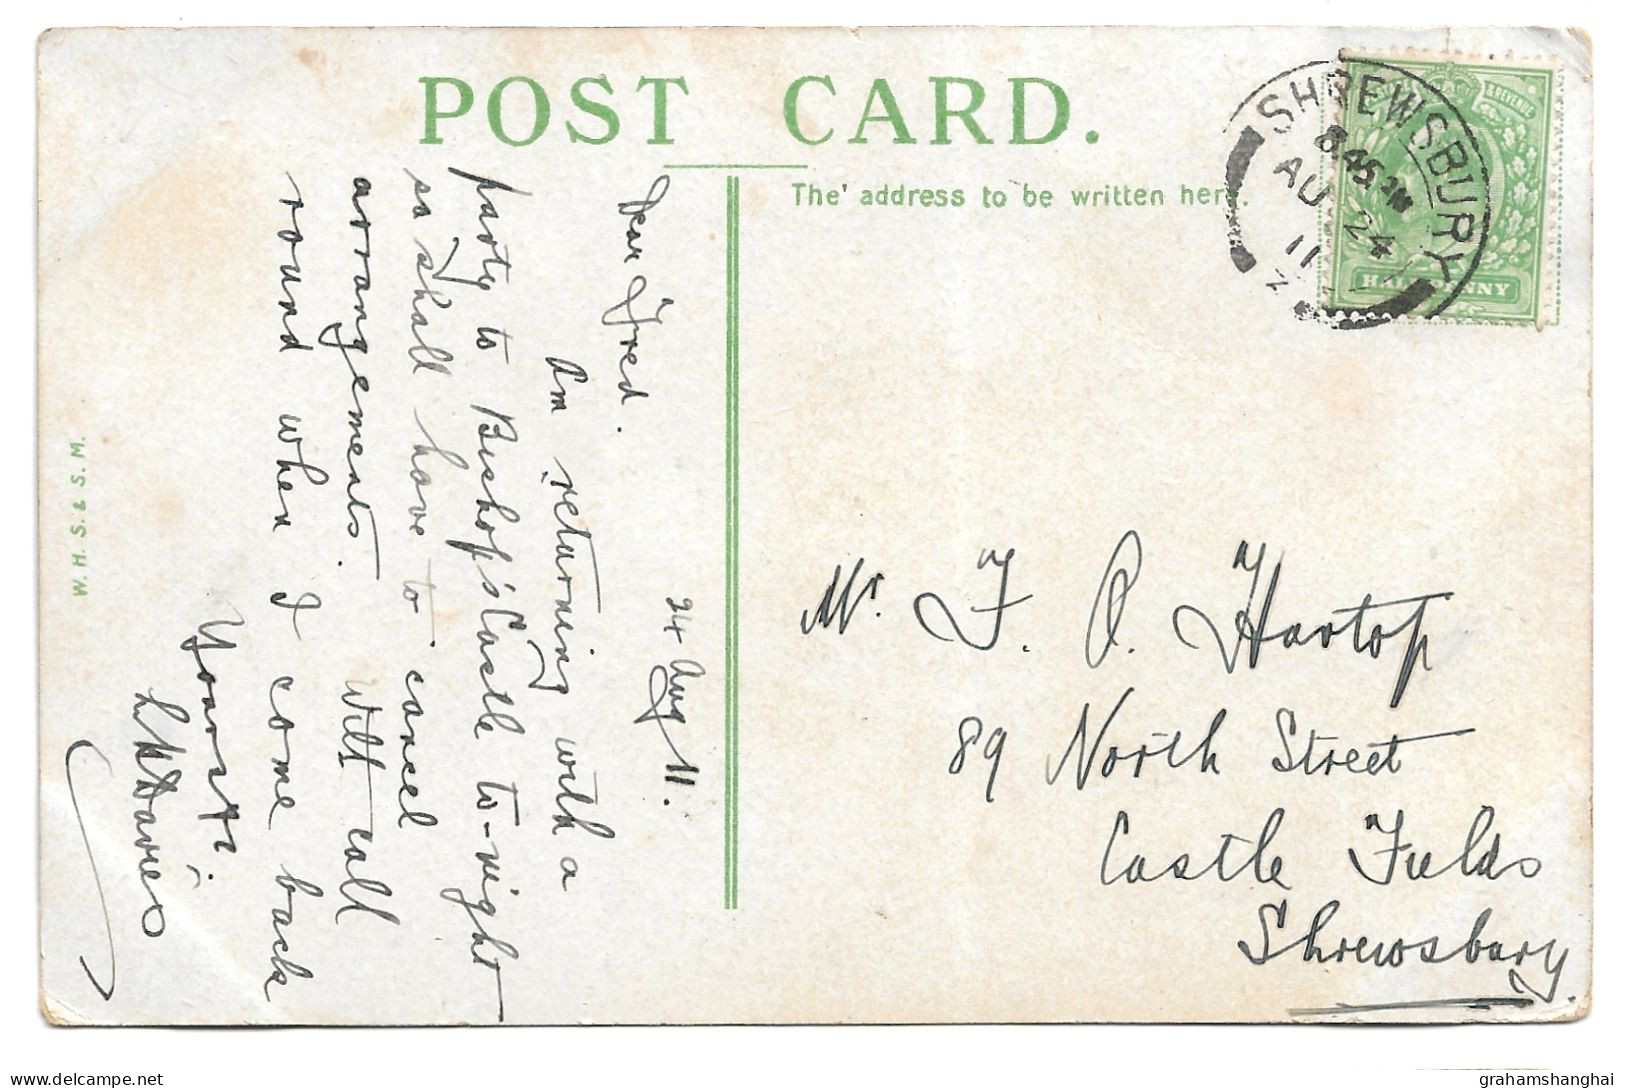 POST CARD.
The address to be written here.
W. H. S. & S. M.
SHREWSBURY
8.45 AM
AU 24
11
& REVENUE
HALFPENNY
24 Aug 11.
Dear Fred.
Am returning with a
party to Bishop's Castle to-night
so shall have to cancel
arrangements. Will call
round when I come back
Yours
Davies
Mr. F. O. Hartop
89 North Street
Castle Fields
Shrewsbury.
delcampe.net
grahamshanghai